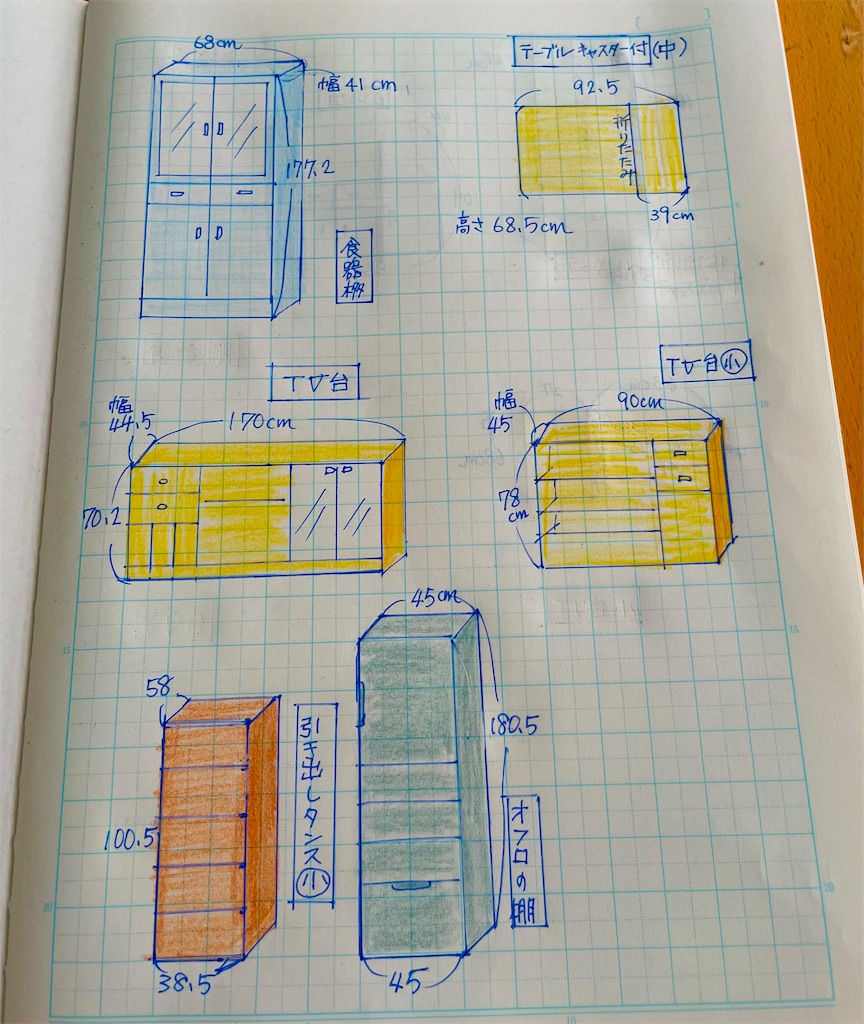 68cm
幅 41 cm
177.2
食器棚
テーブルキャスター付(中)
92.5
折りたたみ
39cm
高さ 68.5cm
TV台
幅
44.5
170cm
70.2
TV台㊥小
幅
45
90cm
78
cm
58
100.5
38.5
引き出しタンス小
45cm
180.5
45
オフロの棚
5
10
10
15
15
20
20
10